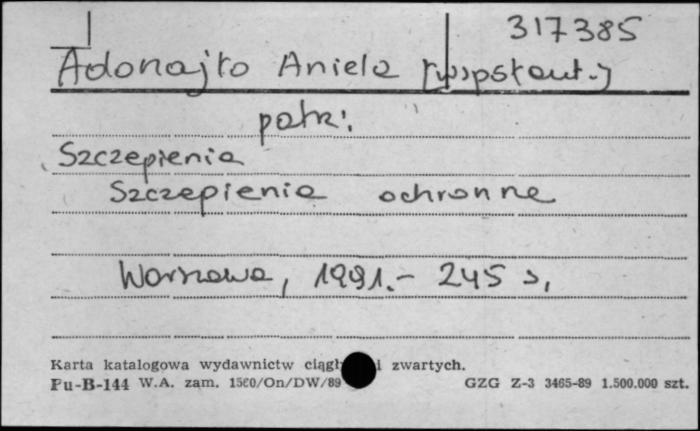 317385
Adonajło Aniela [wspłaut.]
patrz:
Szczepienia
Szczepienia ochronne
Warszawa, 1991.- 245 s.
Karta katalogowa wydawnictw i zwartych.
Pu-B-144 W.A. zam. 1560/On/DW/89 GZG Z-3 3465-89 1.500.000 szt.